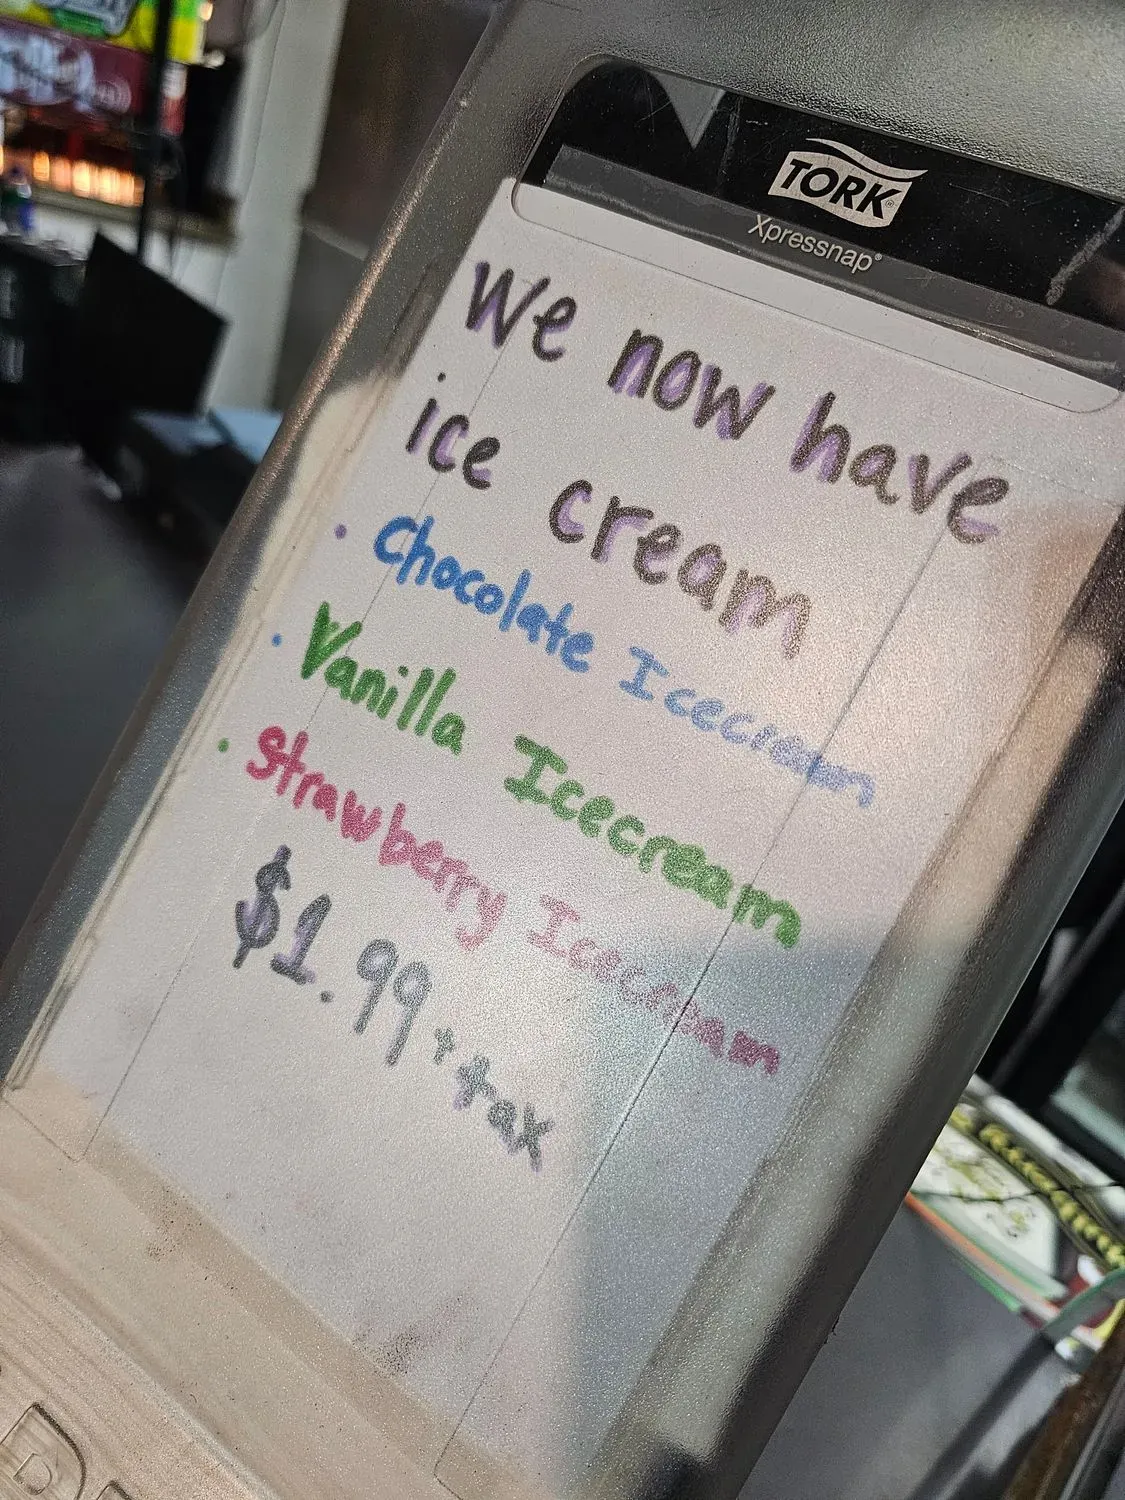 TORK®
Xpressnap®
We now have
ice cream
• Chocolate Icecream
• Vanilla Icecream
• Strawberry Icecream
$1.99 + tax